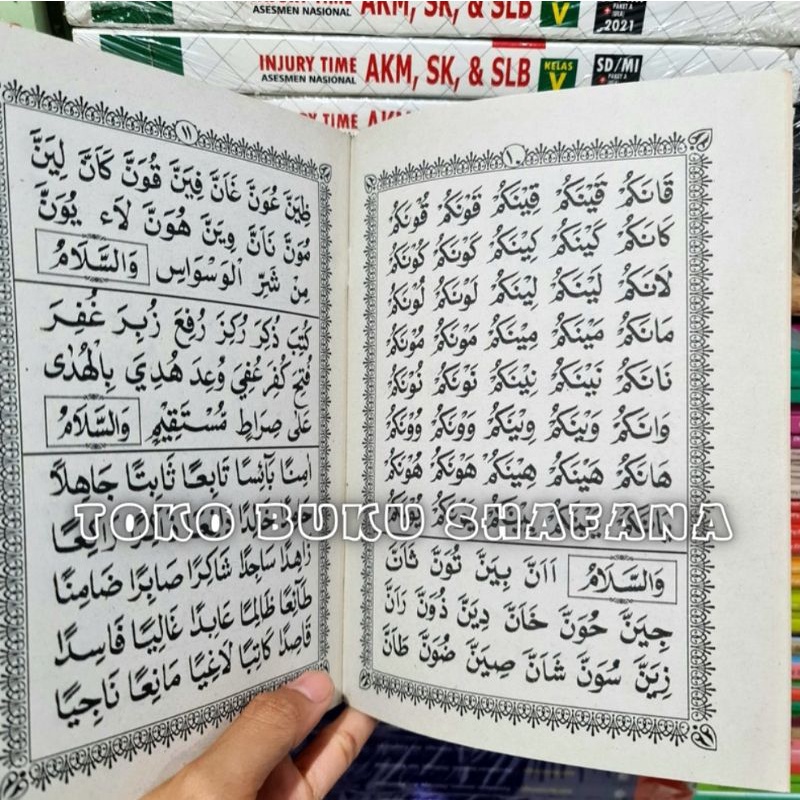 ASESMEN NASIONAL AKM, SK, & SLB V 2021
INJURY TIME AKM, SK, & SLB KELAS V SD/MI
ASESMEN NASIONAL PAKET A
TIME
١٠
قَانَكُمْ قَيْنَكُمْ قِيْنَكُمْ قَوْنَكُمْ قُوْنَكُمْ
كَانَكُمْ كَيْنَكُمْ كِيْنَكُمْ كَوْنَكُمْ كُوْنَكُمْ
لَانَكُمْ لَيْنَكُمْ لِيْنَكُمْ لَوْنَكُمْ لُوْنَكُمْ
مَانَكُمْ مَيْنَكُمْ مِيْنَكُمْ مَوْنَكُمْ مُوْنَكُمْ
نَانَكُمْ نَيْنَكُمْ نِيْنَكُمْ نَوْنَكُمْ نُوْنَكُمْ
وَانَكُمْ وَيْنَكُمْ وِيْنَكُمْ وَوْنَكُمْ وُوْنَكُمْ
هَانَكُمْ هَيْنَكُمْ هِيْنَكُمْ هَوْنَكُمْ هُوْنَكُمْ
وَالسَّلَامُ اَانَّ بِيَنَّ تُوَنَّ ثَانَّ
جِيَنَّ حُوَنَّ خَانَّ دِيَنَّ ذُوَنَّ رَانَّ
زِيَنَّ سُوَنَّ شَانَّ صِيَنَّ ضُوَنَّ طَانَّ
١١
ظِيَنَّ عُوَنَّ غَانَّ فِيَنَّ قُوَنَّ كَانَّ لِيَنَّ
مُوَنَّ نَانَّ وِيَنَّ هُوَنَّ لَاء يُوَنَّ
مِنْ شَرِّ الْوَسْوَاسِ وَالسَّلَامُ
كُتِبَ ذُكِرَ رُكِزَ رُفِعَ زُبِرَ غُفِرَ
فُتِحَ كُفِرَ عُفِيَ وُعِدَ هُدِيَ بِالْهُدٰى
عَلٰى صِرَاطٍ مُسْتَقِيْمٍ وَالسَّلَامُ
اٰمِنًا بَآئِسًا تَابِعًا ثَابِتًا جَاهِلًا
TOKO BUKU SHAFANA
زَاهِدًا سَاجِدًا شَاكِرًا صَابِرًا ضَامِنًا
طَآئِعًا ظَالِمًا عَابِدًا غَالِيًا فَاسِدًا
قَاصِدًا كَاتِبًا لَاغِيًا مَانِعًا نَاجِيًا